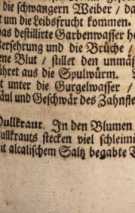 die schwangern Weiber / da
um die Leibsfrucht kommen
das destillirte Garbenwasser he
Versehrung und die Brüche /
ene Blut / stillet den unmäs
ühret aus die Spulwürm.
t unter die Gurgelwasser /
äul und Geschwär des Zahnfle
Dullkraut. In den Blumen
ullkrauts stecken viel schleimi
it alcalischem Saltz begabte T